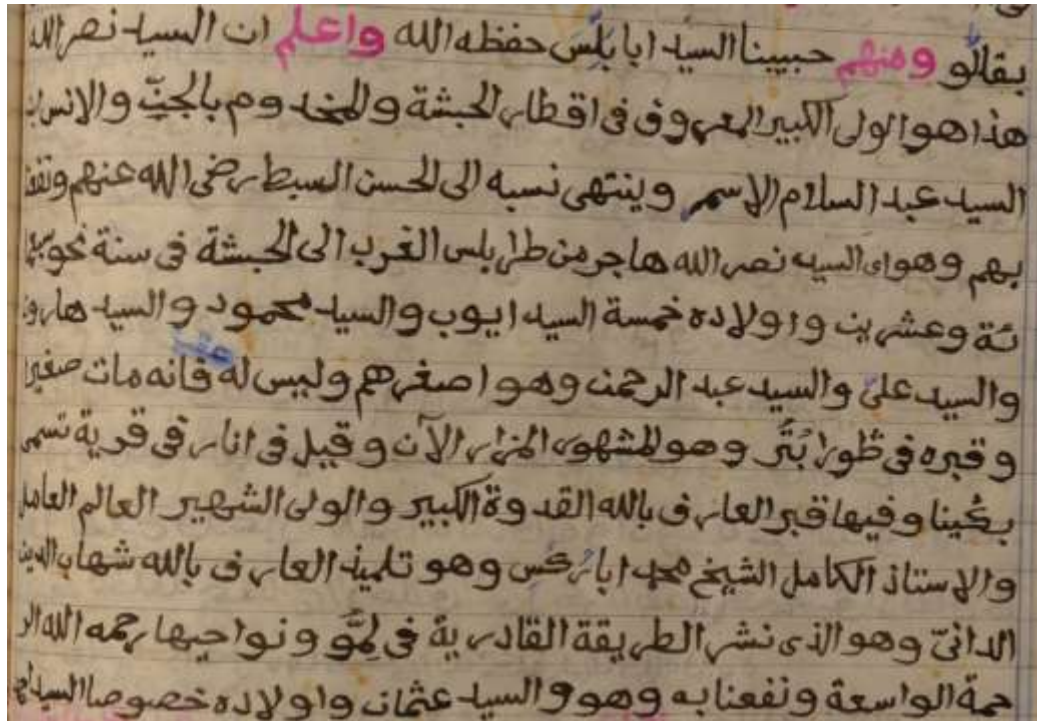 بقالو ومنهم حبيبنا السيد ابا بلس حفظه الله واعلم ان السيد نصر الله
هذا هو الولى الكبير المعروف فى اقطار الحبشة والمخدوم بالجن والانس
السيد عبد السلام الاسمر وينتهى نسبه الى الحسن السبط رضى الله عنهم
بهم وهو اى السيد نصر الله هاجر من طرابلس الغرب الى الحبشة فى سنة نحو
ئة وعشرين واولاده خمسة السيد ايوب والسيد محمود والسيد هارون
والسيد على والسيد عبد الرحمن وهو اصغرهم وليس له عقب فانه مات صغيرا
وقبره فى طورا بتر وهو المشهور المزار الآن وقيل فى انار فى قرية تسمى
بكينا وفيها قبر العارف بالله القدوة الكبير والولى الشهير العالم العامل
والاستاذ الكامل الشيخ محمد ابا ركس وهو تلميذ العارف بالله شهاب الدين
الدانىّ وهو الذى نشر الطريقة القادرية فى لِمُّو ونواحيها رحمه الله الر
حمة الواسعة ونفعنا به وهو والسيد عثمان واولاده خصوصا السيد